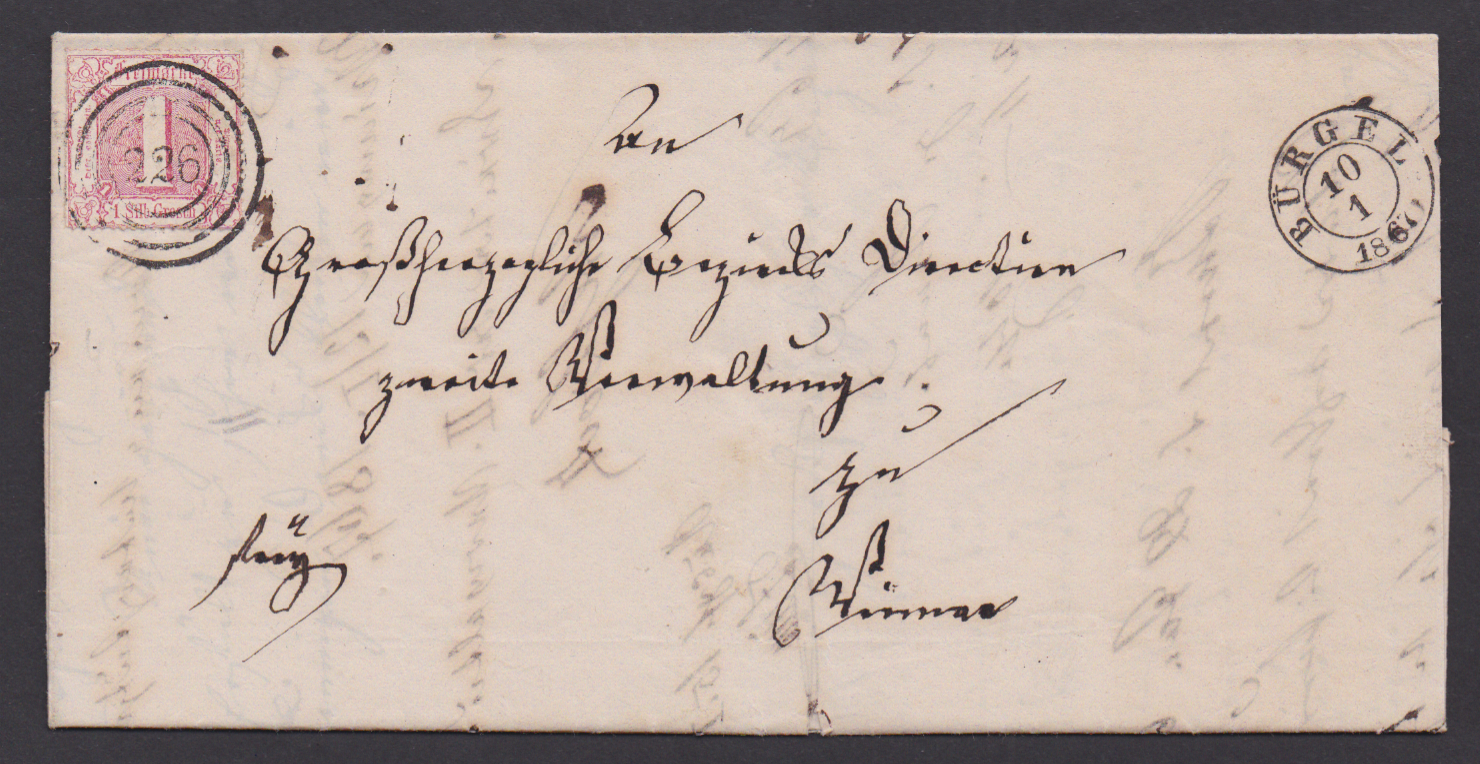 Freimarke
1
1 Silb. Grosch.
226
BÜRGEL
10
1
1867
An
Großherzogliche Bezirks Direction
zweite Verwaltung
zu
Weimar